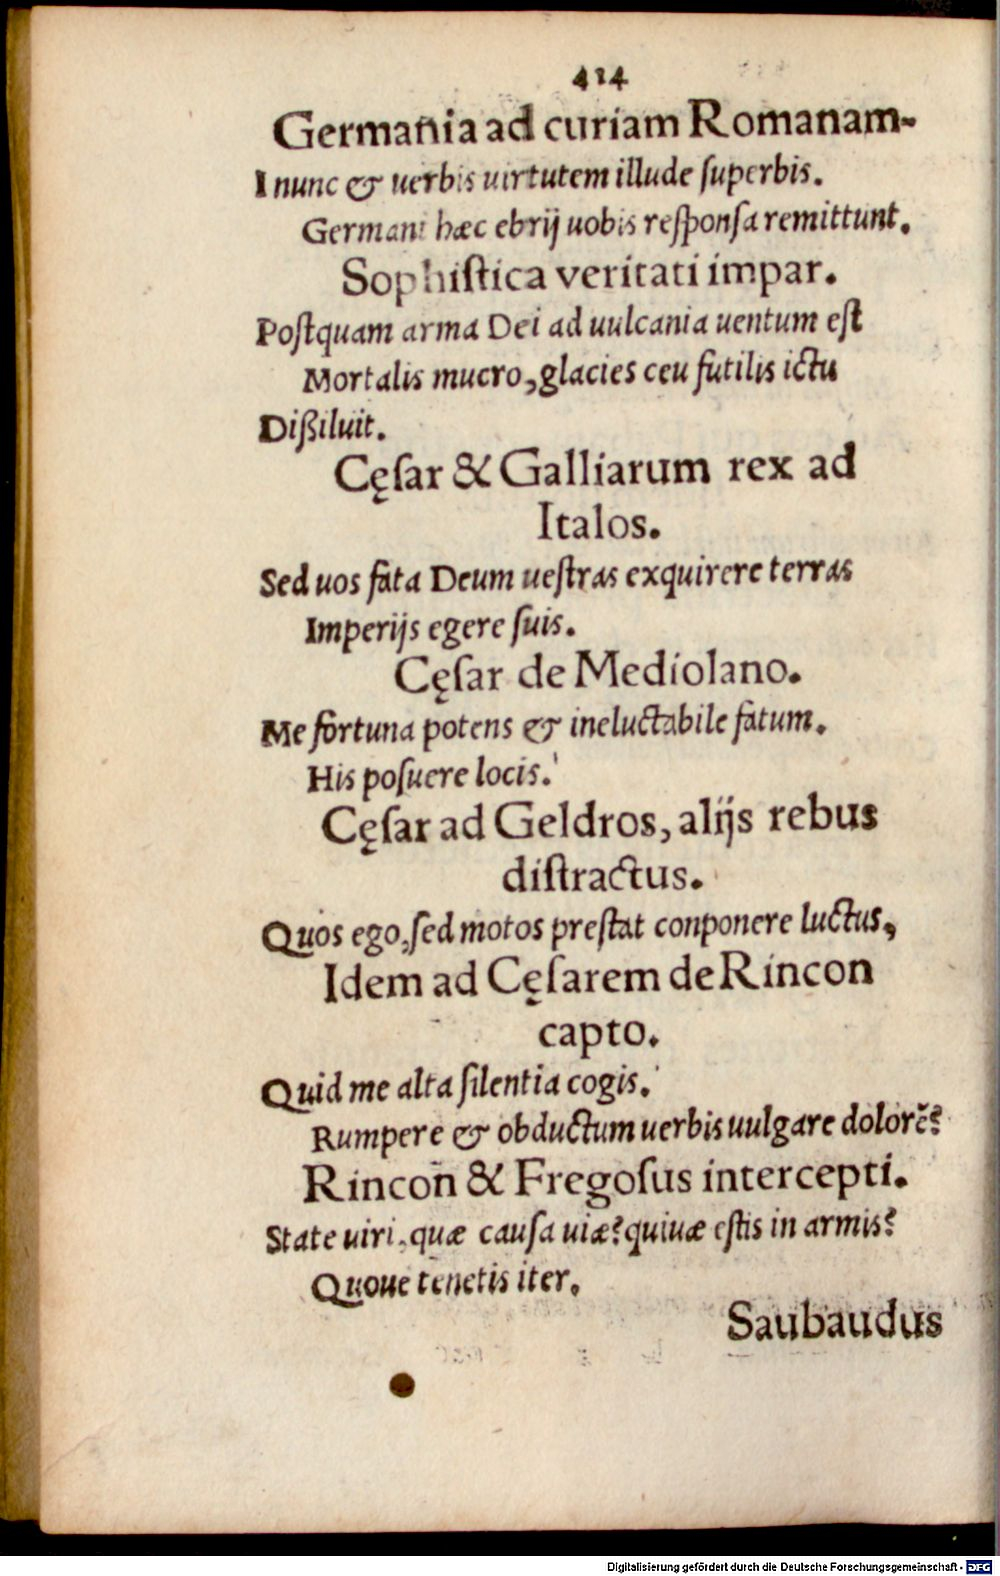 414
Germania ad curiam Romanam-
I nunc & uerbis uirtutem illude ſuperbis.
Germani hæc ebrij uobis reſponſa remittunt.
Sophiſtica veritati impar.
Poſtquam arma Dei ad uulcania uentum eſt
Mortalis mucro, glacies ceu futilis ictu
Dißiluit.
Cęſar & Galliarum rex ad
Italos.
Sed uos fata Deum ueſtras exquirere terras
Imperijs egere ſuis.
Cęſar de Mediolano.
Me fortuna potens & ineluctabile fatum.
His poſuere locis.
Cęſar ad Geldros, alijs rebus
diſtractus.
Quos ego, ſed motos preſtat conponere luctus,
Idem ad Cęſarem de Rincon
capto.
Quid me alta ſilentia cogis.
Rumpere & obductum uerbis uulgare dolorē?
Rincon & Fregoſus intercepti.
State uiri, quæ cauſa uiæ? quiuæ eſtis in armis?
Quoue tenetis iter.
Saubaudus
Digitalisierung gefördert durch die Deutsche Forschungsgemeinschaft - DFG